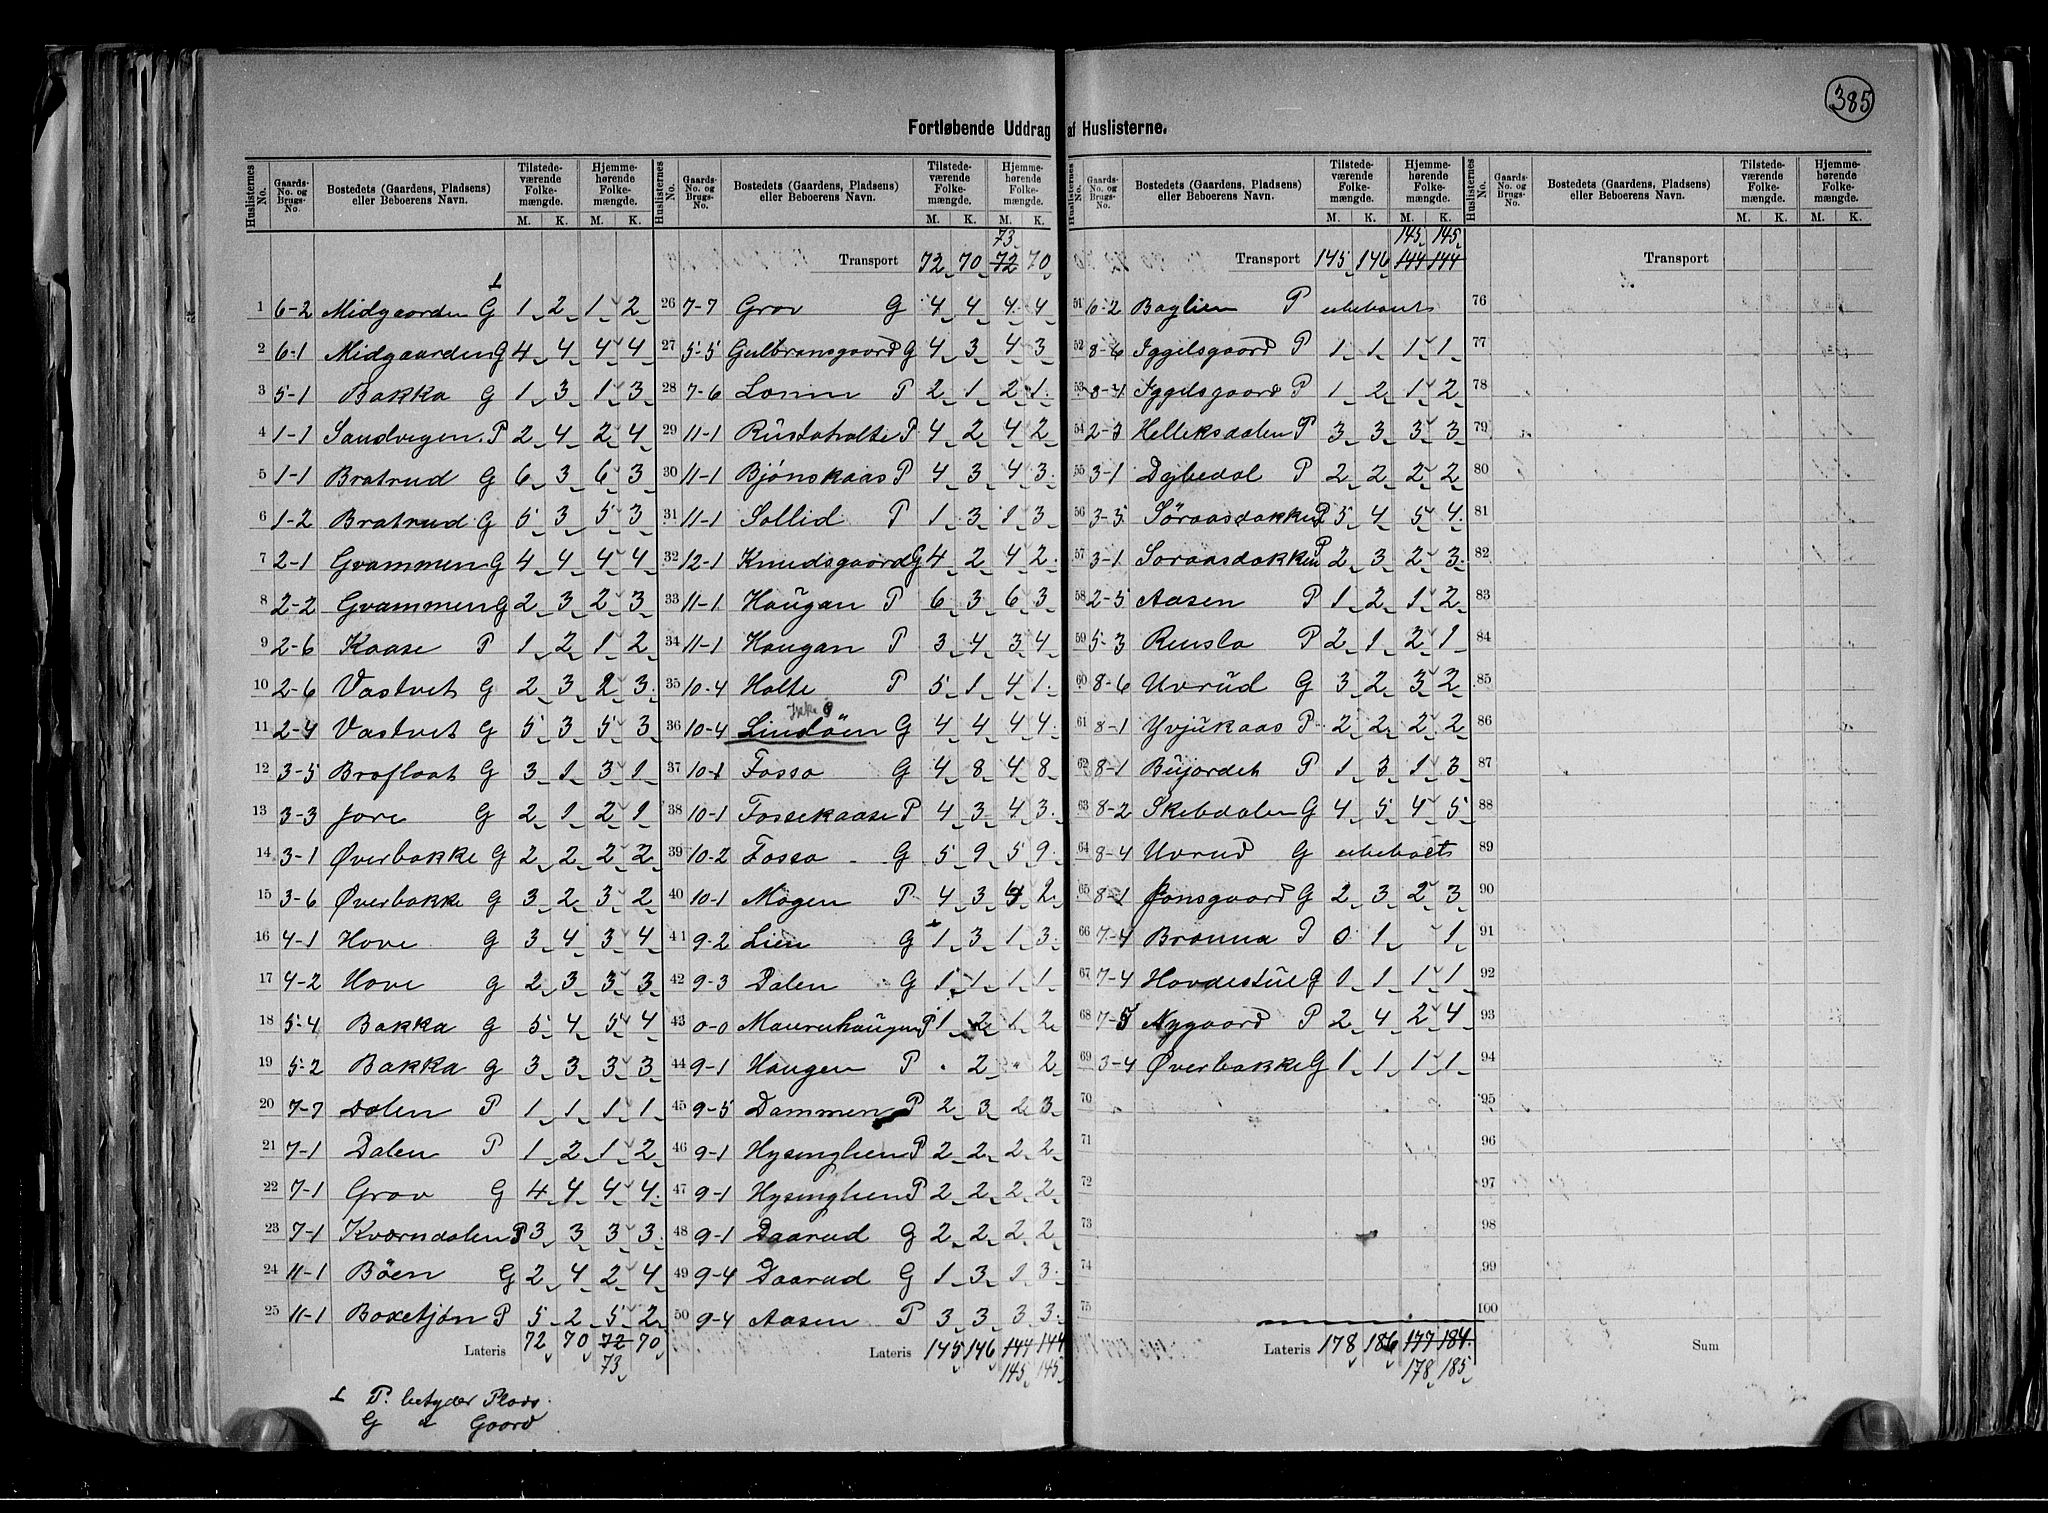 385
Fortløbende Uddrag af Huslisterne.
Huslisternes No. | Gaards-No. og Brugs-No. | Bostedets (Gaardens, Pladsens) eller Beboerens Navn. | Tilstedeværende Folkemængde. M. K. | Hjemmehørende Folkemængde. M. K.
1 6-2 Midgaarden G 1 2 1 2
2 6-1 Midgaarden G 4 4 4 4
3 5-1 Bakka G 1 3 1 3
4 1-1 Sandvigen P 2 4 2 4
5 1-1 Bratrud G 6 3 6 3
6 1-2 Bratrud G 5 3 5 3
7 2-1 Gvammen G 4 4 4 4
8 2-2 Gvammen G 2 3 2 3
9 2-6 Kaase P 1 2 1 2
10 2-6 Vastvet G 2 3 2 3
11 2-4 Vastvet G 5 3 5 3
12 3-5 Braflaat G 3 1 3 1
13 3-3 Jore G 2 1 2 1
14 3-1 Øverbakke G 2 2 2 2
15 3-6 Øverbakke G 3 2 3 2
16 4-1 Hove G 3 4 3 4
17 4-2 Hove G 2 3 3 3
18 5-4 Bakka G 5 4 5 4
19 5-2 Bakka G 3 3 3 3
20 7-7 Dalen P 1 1 1 1
21 7-1 Dalen P 1 2 1 2
22 7-1 Grav G 4 4 4 4
23 7-1 Kværndalen P 3 3 3 3
24 11-1 Böen G 2 4 2 4
25 11-1 Boxetjøn P 5 2 5 2
Lateris 72 70 72 70
73
⊥ P. betyder Plads.
G " Gaard
73
Transport 72 70 72 70
26 7-7 Grav G 4 4 4 4
27 5-5 Gulbransgaard G 4 3 4 3
28 7-6 Lonin P 2 1 2 1
29 11-1 Rustaholte P 4 2 4 2
30 11-1 Bjønskaas P 4 3 4 3
31 11-1 Sollid P 1 3 1 3
32 12-1 Knudsgaard G 4 2 4 2
33 11-1 Haugan P 6 3 6 3
34 11-1 Haugan P 3 4 3 4
35 10-4 Holte P 5 1 4 1
36 10-4 Lindöen G 4 4 4 4
37 10-1 Fosso G 4 8 4 8
38 10-1 Fossekaase P 4 3 4 3
39 10-2 Fosso G 5 9 5 9
40 10-1 Mogen P 4 3 4 2
41 9-2 Lien G 1 3 1 3
42 9-3 Dalen G 1 1 1 1
43 0-0 Maurenhaugen P 1 2 1 2
44 9-1 Haugen P . 2 2
45 9-5 Dammen P 2 3 2 3
46 9-1 Hysinglien P 2 2 2 2
47 9-1 Hysinglien P 2 2 2 2
48 9-1 Daarud G 2 2 2 2
49 9-4 Daarud G 1 3 1 3
50 9-4 Aasen P 3 3 3 3
Lateris 145 146 144 144
145 145
145 145
Transport 145 146 144 144
51 6-2 Baglien P ubeboet
52 8-6 Iggelsgaard P 1 1 1 1
53 8-4 Iggelsgaard P 1 2 1 2
54 2-3 Helleksdalen P 3 3 3 3
55 3-1 Dybedal P 2 2 2 2
56 3-5 Söraasdakken P 5 4 5 4
57 3-1 Soraasdakken P 2 3 2 3
58 2-5 Aasen P 1 2 1 2
59 5-3 Rensla P 2 1 2 1
60 8-6 Uvrud G 3 2 3 2
61 8-1 Yvjukaas P 2 2 2 2
62 8-1 Bujordet P 1 3 1 3
63 8-2 Skebdalen G 4 5 4 5
64 8-4 Uvrud G ubeboets
65 8-1 Jonsgaard G 2 3 2 3
66 7-4 Bronna P 0 1 1
67 7-4 Hovdestul G 1 1 1 1
68 7-5 Nygaard P 2 4 2 4
69 3-4 Øverbakke G 1 1 1 1
70
71
72
73
74
75
Lateris 178 186 177 184
178 185
Transport
76
77
78
79
80
81
82
83
84
85
86
87
88
89
90
91
92
93
94
95
96
97
98
99
100
Sum